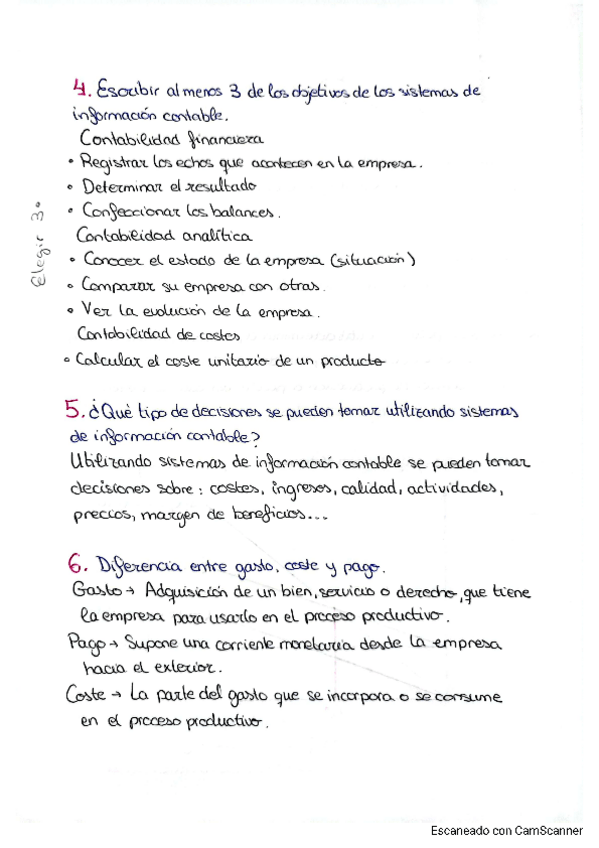 4. Escribir al menos 3 de los objetivos de los sistemas de
información contable.
Contabilidad financiera
• Registrar los echos que acontecen en la empresa.
• Determinar el resultado
• Confeccionar los balances.
Elegir 3.
Contabilidad analítica
• Conocer el estado de la empresa (situación)
• Comparar su empresa con otras.
• Ver la evolución de la empresa.
Contabilidad de costes
• Calcular el coste unitario de un producto
5. ¿Qué tipo de decisiones se pueden tomar utilizando sistemas
de información contable?
Utilizando sistemas de información contable se pueden tomar
decisiones sobre: costes, ingresos, calidad, actividades,
precios, margen de beneficios...
6. Diferencia entre gasto, coste y pago.
Gasto → Adquisición de un bien, servicio o derecho, que tiene
la empresa para usarlo en el proceso productivo.
Pago → Supone una corriente monetaria desde la empresa
hacia el exterior.
Coste → La parte del gasto que se incorpora o se consume
en el proceso productivo.
Escaneado con CamScanner